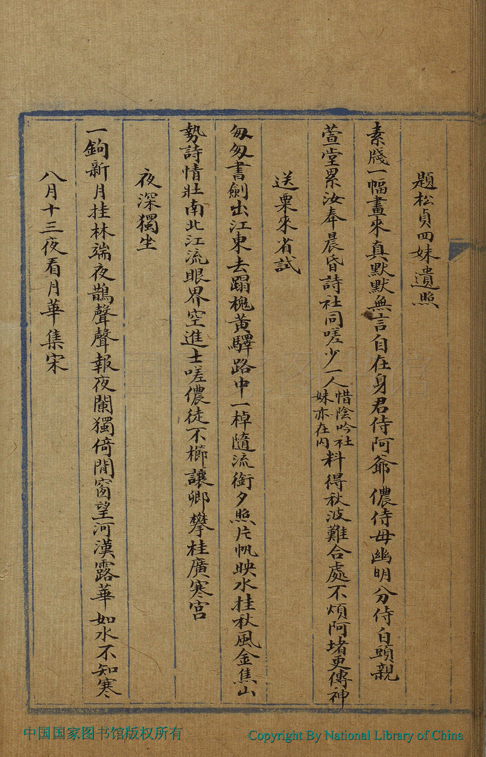 題松貞四妹遺照
素牋一幅畫來真默默無言自在身君侍阿爺儂侍母幽明分侍白頭親
萱堂累汝奉晨昏詩社同嗟少一人惜陰吟社妹亦在內料得秋波難合處不煩阿堵更傳神
送栗來省試
匆匆書劍出江東去蹋槐黃驛路中一棹隨流銜夕照片帆映水挂秋風金焦山
勢詩情壯南北江流眼界空進士嗟儂徒不櫛讓卿攀桂廣寒宮
夜深獨坐
一鉤新月桂林端夜鵲聲聲報夜闌獨倚閒窗望河漢露華如水不知寒
八月十三夜看月華 集宋
中国国家图书馆版权所有
Copyright By National Library of China